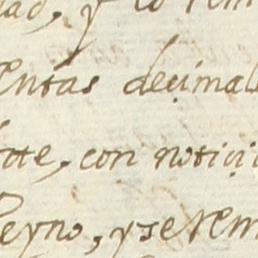 dad, y lo rem
entas deçimale
te, con notiçi
Reyno, y se rem